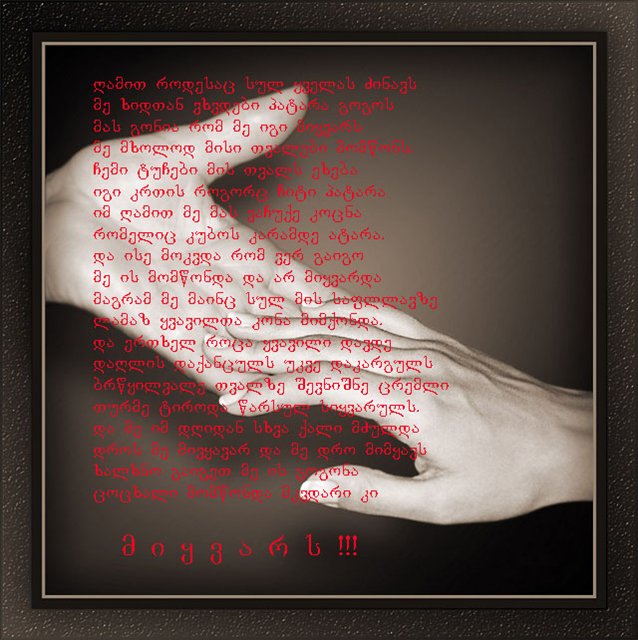 ღამით როდესაც სულ ყველას ძინავს
მე ხიდთან ვხვდები პატარა გოგოს
მას გონია რომ მე იგი მიყვარს
მე მხოლოდ მისი თვალები მომწონს
ჩემი ტუჩები მის თვალს ეხება
იგი კრთის როგორც ჩიტი პატარა
იმ ღამით მე მას ვაჩუქე კოცნა
რომელიც კუბოს კარამდე ატარა.
და ისე მოკვდა რომ ვერ გაიგო
მე ის მომწონდა და არ მიყვარდა
მაგრამ მე მაინც სულ მის საფლლავზე
ლამაზ ყვავილთა კონა მიმქონდა.
და ერთხელ როცა ყვავილი დავდე
დაღლის დაქანცულს უკვე დაკარგულს
ბრწყილვალე თვალზე შევნიშნე ცრემლი
თურმე ტიროდა წარსულ სიყვარულს.
და მე იმ დღიდან სხვა ქალი მძულდა
დროს მე მივყავარ და მე დრო მიმყავს
ხალხნო გაიგეთ მე ის გოგონა
ცოცხალი მომწონდა მკვდარი კი
მ ი ყ ვ ა რ ს !!!